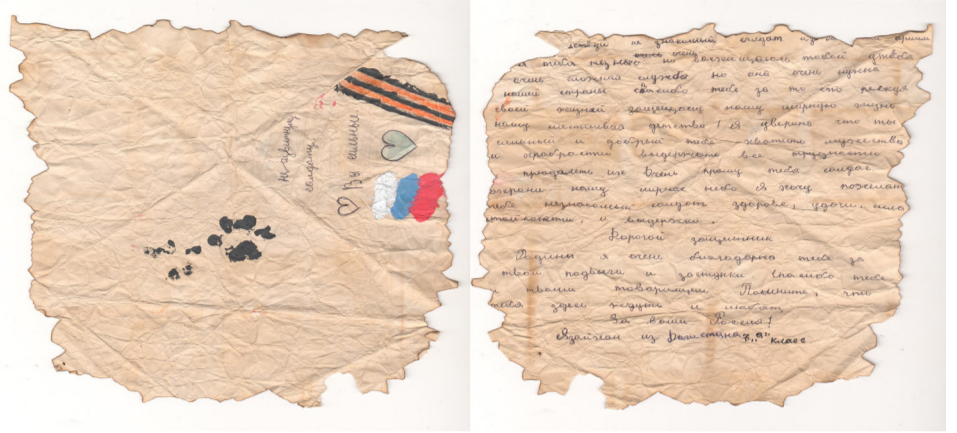 Незнакомому
солдату
Вы сильные
не знакомый солдат
очень очень
я тебя
очень сложная служба но она очень нужна
нашей страны спасибо тебе за то что рискуя
своей жизней защищаеш нашу мирную жизнь
нашу счастливае детство! Я уверена что ты
сильный и добрый тебе хватит мужество
и храбрости выдержать все трудности
преодалеть их Очень прашу тебя солдат
охрани нашу мирнае небо Я хочу пожелат
тебе незнакомый солдат здоровье, удачи, сила
стойкости, и выдержки.
Дорогой защитник
Родины я очень благодарна тебе за
твои подвиги и заступки Спасибо тебе
и твоим товарищам Помните, что
тебя здесь ждут и любят
За вами Россия!
из Дагистана 7 "а" класс